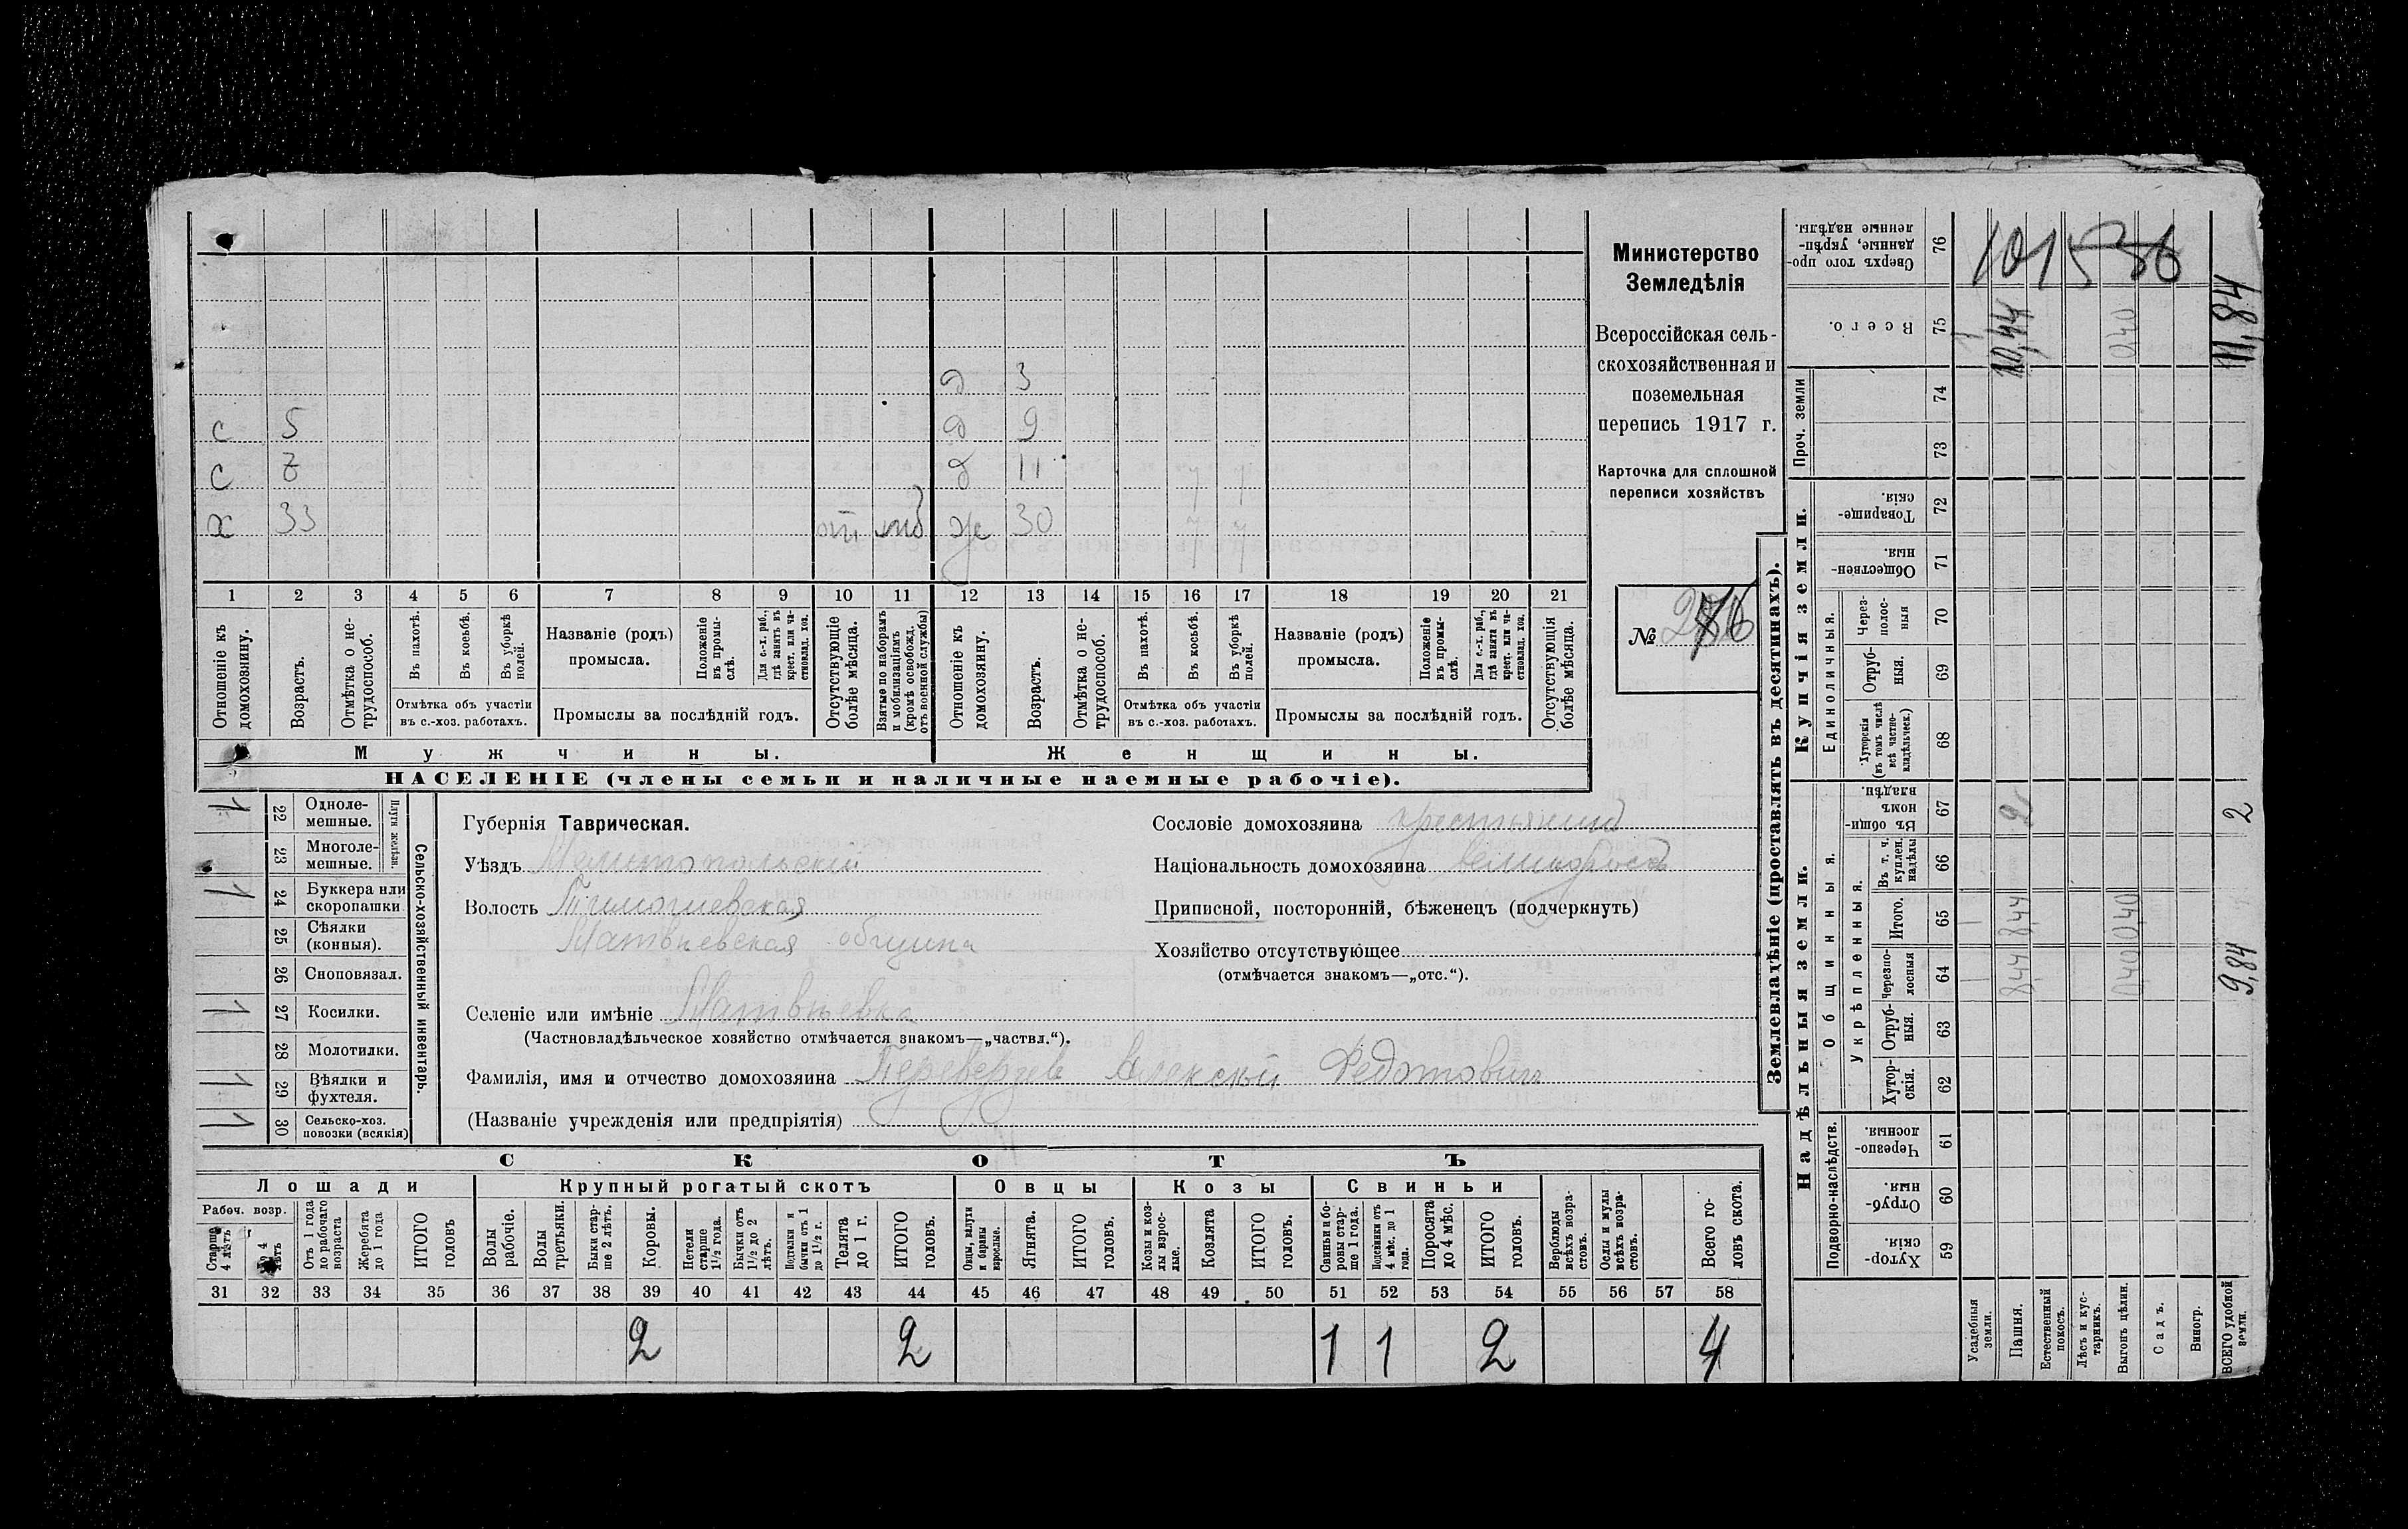 д 3
с 5 д 9
с 7 д 11
х 33 от. моб ж 30
1 2 3 4 5 6 7 8 9 10 11 12 13 14 15 16 17 18 19 20 21
Отношеніе къ домохозяину.
Возрастъ.
Отмѣтка о не-трудоспособ.
Въ пахотѣ.
Въ косьбѣ.
Въ уборкѣ полей.
Отмѣтка объ участіи въ с.-хоз. работахъ.
Названіе (родъ) промысла.
Положеніе въ промы-слѣ.
Для с.-х. раб., гдѣ занятъ въ крест. или ча-стновлад. хоз.
Промыслы за послѣдній годъ.
Отсутствующіе болѣе мѣсяца.
Взятые по наборамъ и мобилизаціямъ (кромѣ освобожд. отъ военной службы)
Отношеніе къ домохозяину.
Возрастъ.
Отмѣтка о не-трудоспособ.
Въ пахотѣ.
Въ косьбѣ.
Въ уборкѣ полей.
Отмѣтка объ участіи въ с.-хоз. работахъ.
Названіе (родъ) промысла.
Положеніе въ промы-слѣ.
Для с.-х. раб., гдѣ занята въ крест. или ча-стновлад. хоз.
Промыслы за послѣдній годъ.
Отсутствующія болѣе мѣсяца.
Мужчины. Женщины.
НАСЕЛЕНІЕ (члены семьи и наличные наемные рабочіе).
Министерство
Земледѣлія
Всероссійская сель-
скохозяйственная и
поземельная
перепись 1917 г.
Карточка для сплошной
переписи хозяйствъ
№ 76
1 22 Одноле-мешные.
23 Многоле-мешные.
Плуги желѣзн.
1 24 Буккера или скоропашки
25 Сѣялки (конныя).
26 Сноповязал.
1 27 Косилки.
28 Молотилки.
1 29 Вѣялки и фухтеля.
1 30 Сельско-хоз. повозки (всякія)
Сельско-хозяйственный инвентарь.
Губернія Таврическая.
Уѣздъ Мелитопольскій
Волость Тимошевская
Матвѣевская община
Селеніе или имѣніе Матвѣевка
(Частновладѣльческое хозяйство отмѣчается знакомъ—„частвл.“).
Фамилія, имя и отчество домохозяина Переверзев Алексѣй Федотович
(Названіе учрежденія или предпріятія)
Сословіе домохозяина крестьянинъ
Національность домохозяина великороссъ
Приписной, посторонній, бѣженецъ (подчеркнуть)
Хозяйство отсутствующее
(отмѣчается знакомъ—„отс.“).
СКОТЪ
Лошади Крупный рогатый скотъ Овцы Козы Свиньи
Рабоч. возр.
Старше 4 лѣтъ
До 4 лѣтъ
Отъ 1 года до рабочаго возраста
Жеребята до 1 года
ИТОГО головъ
Волы рабочіе.
Волы третьяки.
Быки стар-ше 2 лѣтъ.
Коровы.
Нетели старше 1½ года.
Бычки отъ 1½ до 2 лѣтъ.
Подтелки и бычки отъ 1 до 1½ г.
Телята до 1 г.
ИТОГО головъ.
Овцы, валухи и бараны взрослые.
Ягнята.
ИТОГО головъ.
Козы и коз-лы взрос-лые.
Козлята
ИТОГО головъ.
Свиньи и бо-ровы стар-ше 1 года.
Подсвинки отъ 4 мѣс. до 1 года.
Поросята до 4 мѣс.
ИТОГО головъ.
Верблюды всѣхъ возра-стовъ.
Ослы и мулы всѣхъ возра-стовъ.
Всего го-ловъ скота.
31 32 33 34 35 36 37 38 39 40 41 42 43 44 45 46 47 48 49 50 51 52 53 54 55 56 57 58
2 2 1 1 2 4
Землевладѣніе (проставлять въ десятинахъ).
Купчія земли.
Надѣльныя земли.
Сверхъ того про-данные, укрѣп-ленные надѣлы. 76 101536
Всего. 75 1 10,44 0,40 11,84
Проч. земли 74
73
Товарище-скія. 72
Обществен-ныя. 71
Единоличныя.
Через-полос-ныя 70
Отруб-ныя. 69
Хуторскія (въ томъ числѣ всѣ частно-владѣльческ.) 68
Въ общин-номъ владѣн. 67 2 2
Общинныя.
Укрѣпленныя.
Въ т. ч. куплен. надѣлы 66
Итого. 65 1 8,44 0,40
Черезпо-лосныя 64 1 8,44 0,40 9,84
Отруб-ныя. 63
Хутор-скія. 62
Подворно-наслѣдств.
Черезпо-лосныя. 61
Отруб-ныя. 60
Хутор-скія. 59
Усадебныя земли.
Пашня.
Естественный покосъ.
Лѣсъ и кус-тарникъ.
Выгонъ цѣлин.
Садъ.
Виногр.
ВСЕГО удобной земли.